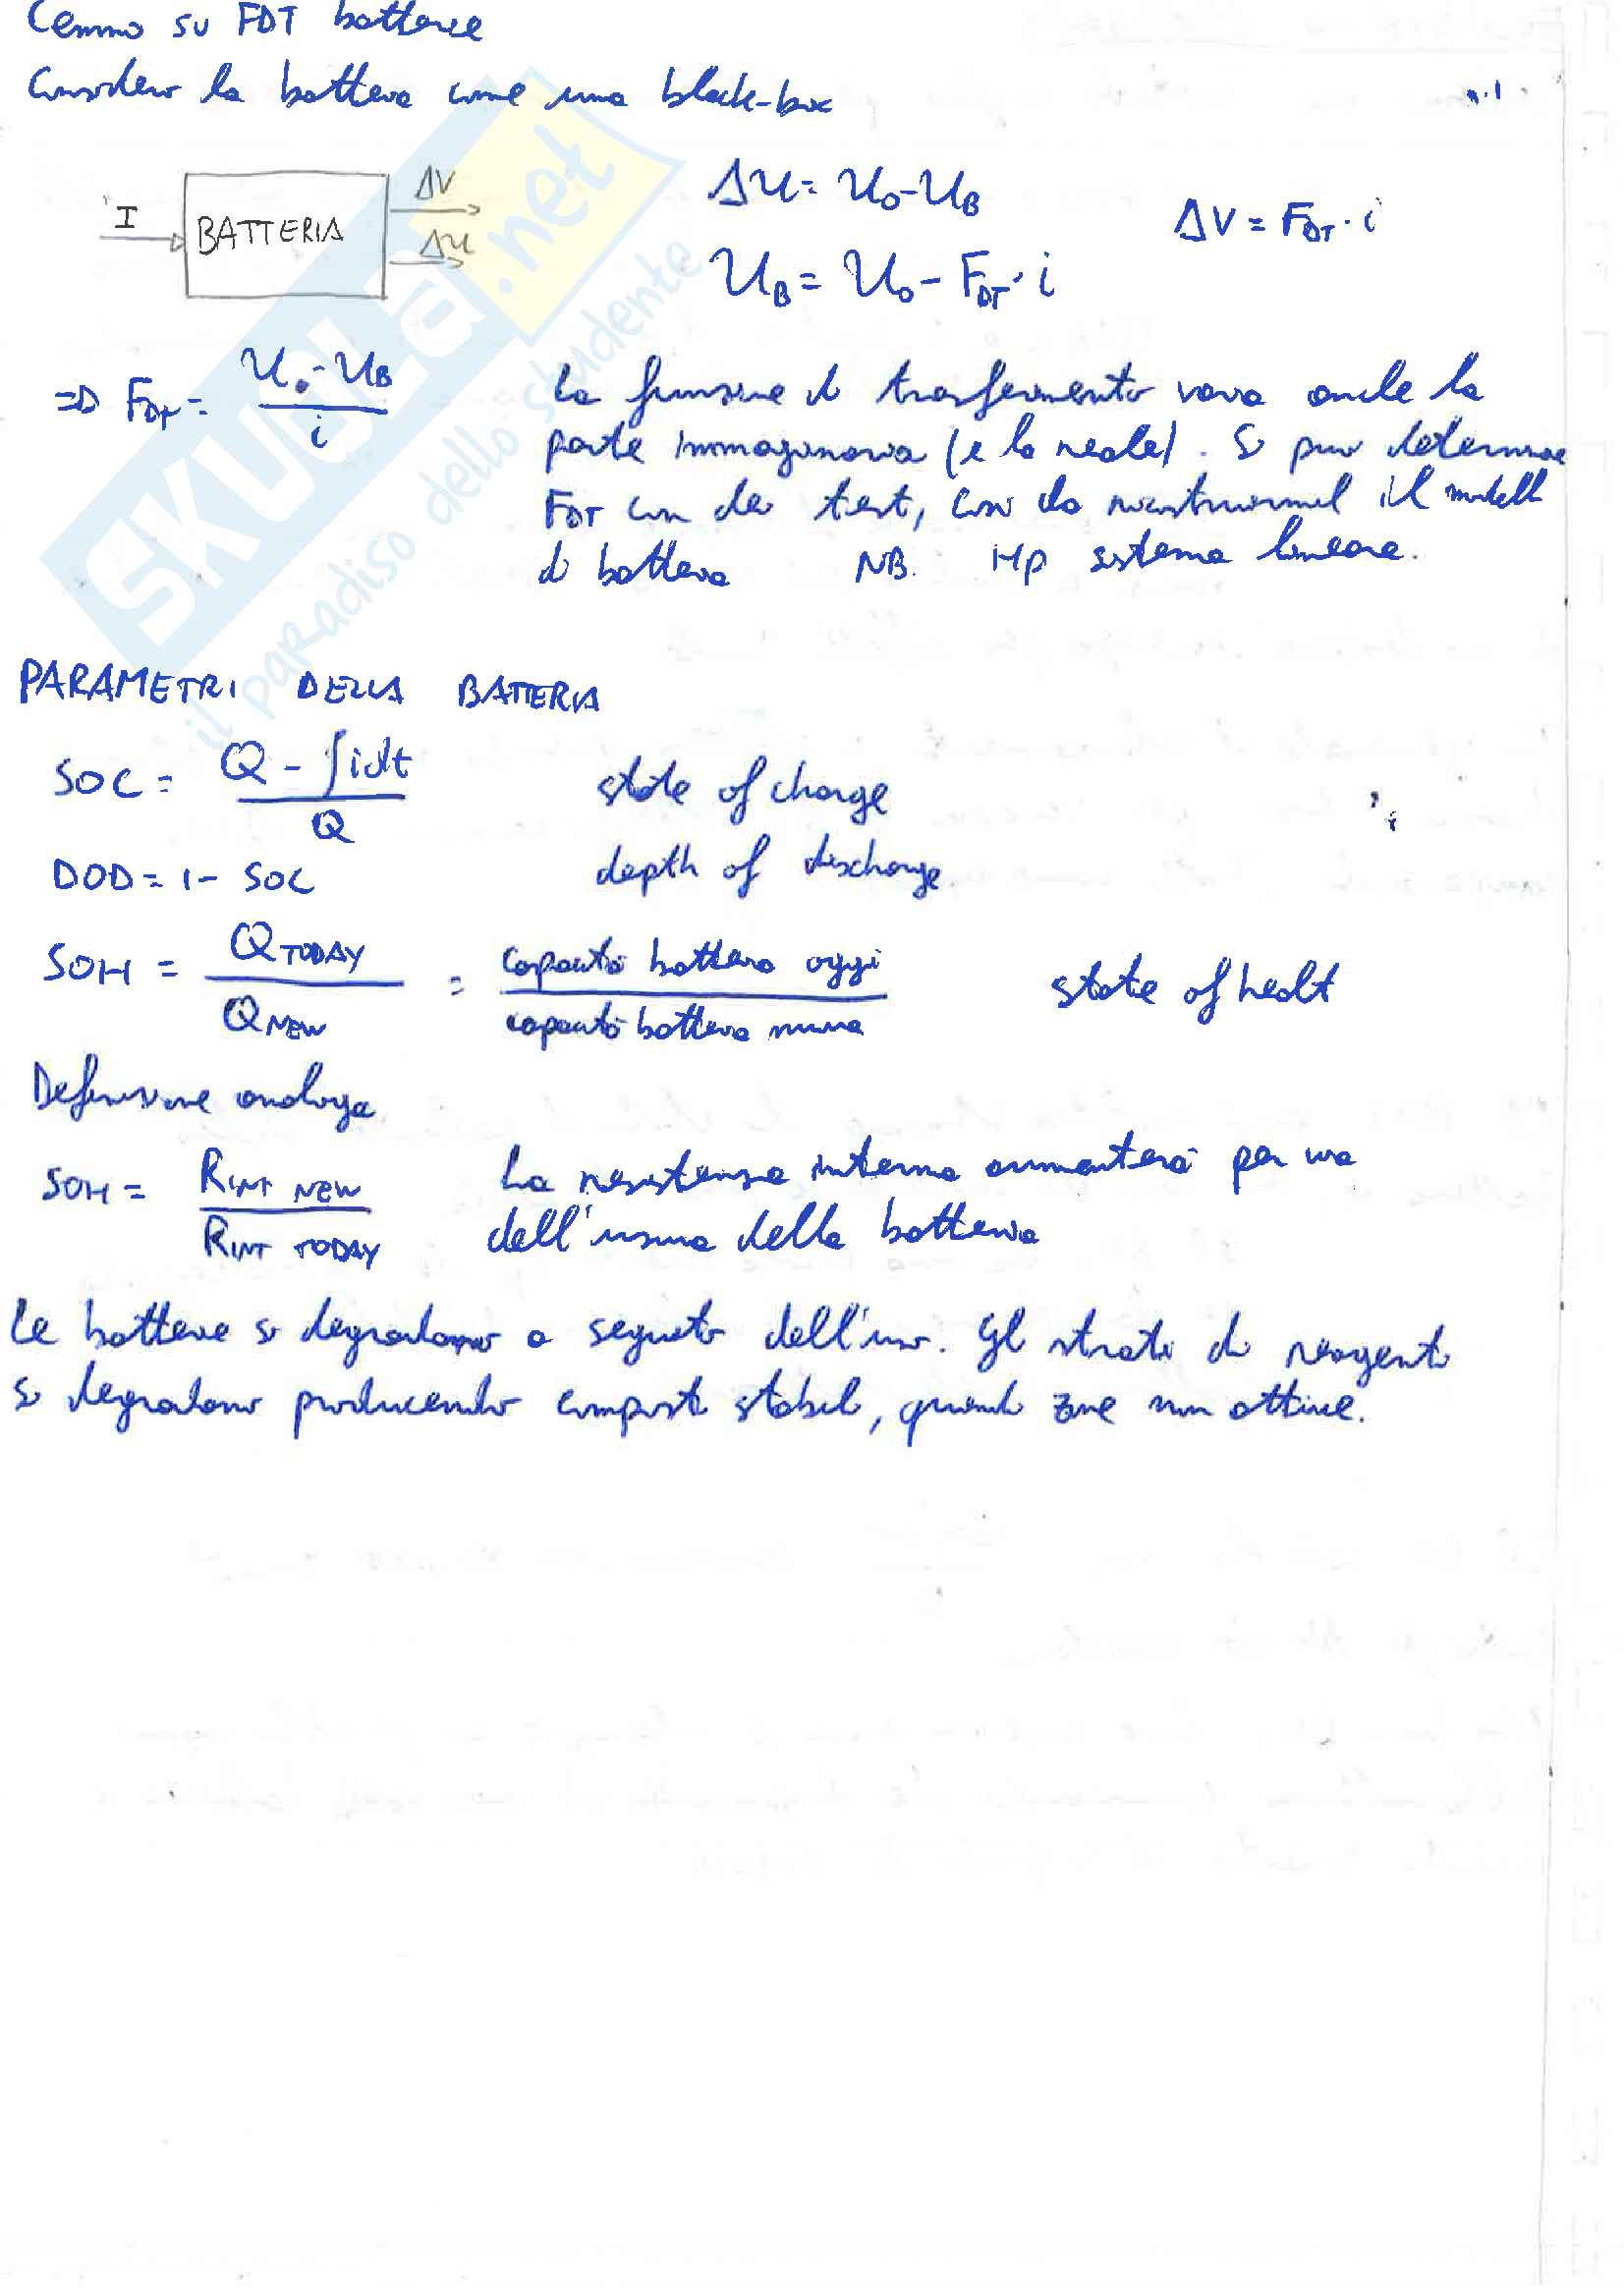 Cenno su FDT batterie
Considero la batteria come una black-box
I
BATTERIA
ΔV
Δu
Δu = u₀ - u_B
ΔV = F_DT · i
u_B = u₀ - F_DT · i
=> F_DT = (u₀ - u_B) / i
La funzione di trasferimento varia anche la
parte immaginaria (e la reale). Si può determinare
FDT con dei test, così da ricostruirmi il modello
di batteria NB. Hp sistema lineare.
PARAMETRI DELLA BATTERIA
SOC = (Q - ∫idt) / Q state of charge
DOD = 1 - SOC depth of discharge.
SOH = Q TODAY / Q NEW = capacità batteria oggi / capacità batteria nuova state of healt
Definizione analoga
SOH = R INT NEW / R INT TODAY
La resistenza interna aumenterà per via
dell'usura della batteria
Le batterie si degradano a seguito dell'uso. Gli strati di reagenti
si degradano producendo composti stabili, quindi zone non attive.
SKUOLA.net
il paradiso dello studente